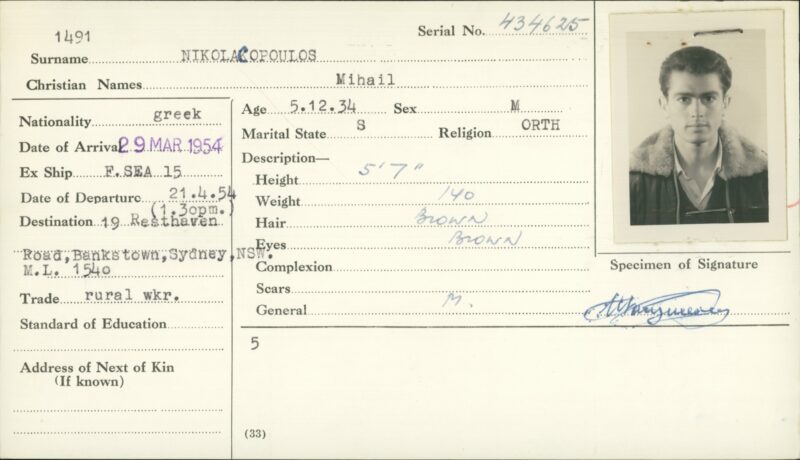 1491
Serial No. 434625
Surname NIKOLACOPOULOS
Christian Names Mihail
Nationality greek
Date of Arrival 29 MAR 1954
Ex Ship F.SEA 15
Date of Departure 21.4.54
(1.30pm.)
Destination 19 Resthaven
Road,Bankstown,Sydney,NSW.
M.L. 1540
Trade rural wkr.
Standard of Education
Address of Next of Kin
(If known)
Age 5.12.34 Sex M
Marital State S Religion ORTH
Description—
Height 5'7"
Weight 140
Hair BROWN
Eyes BROWN
Complexion
Scars
General M.
5
(33)
Specimen of Signature